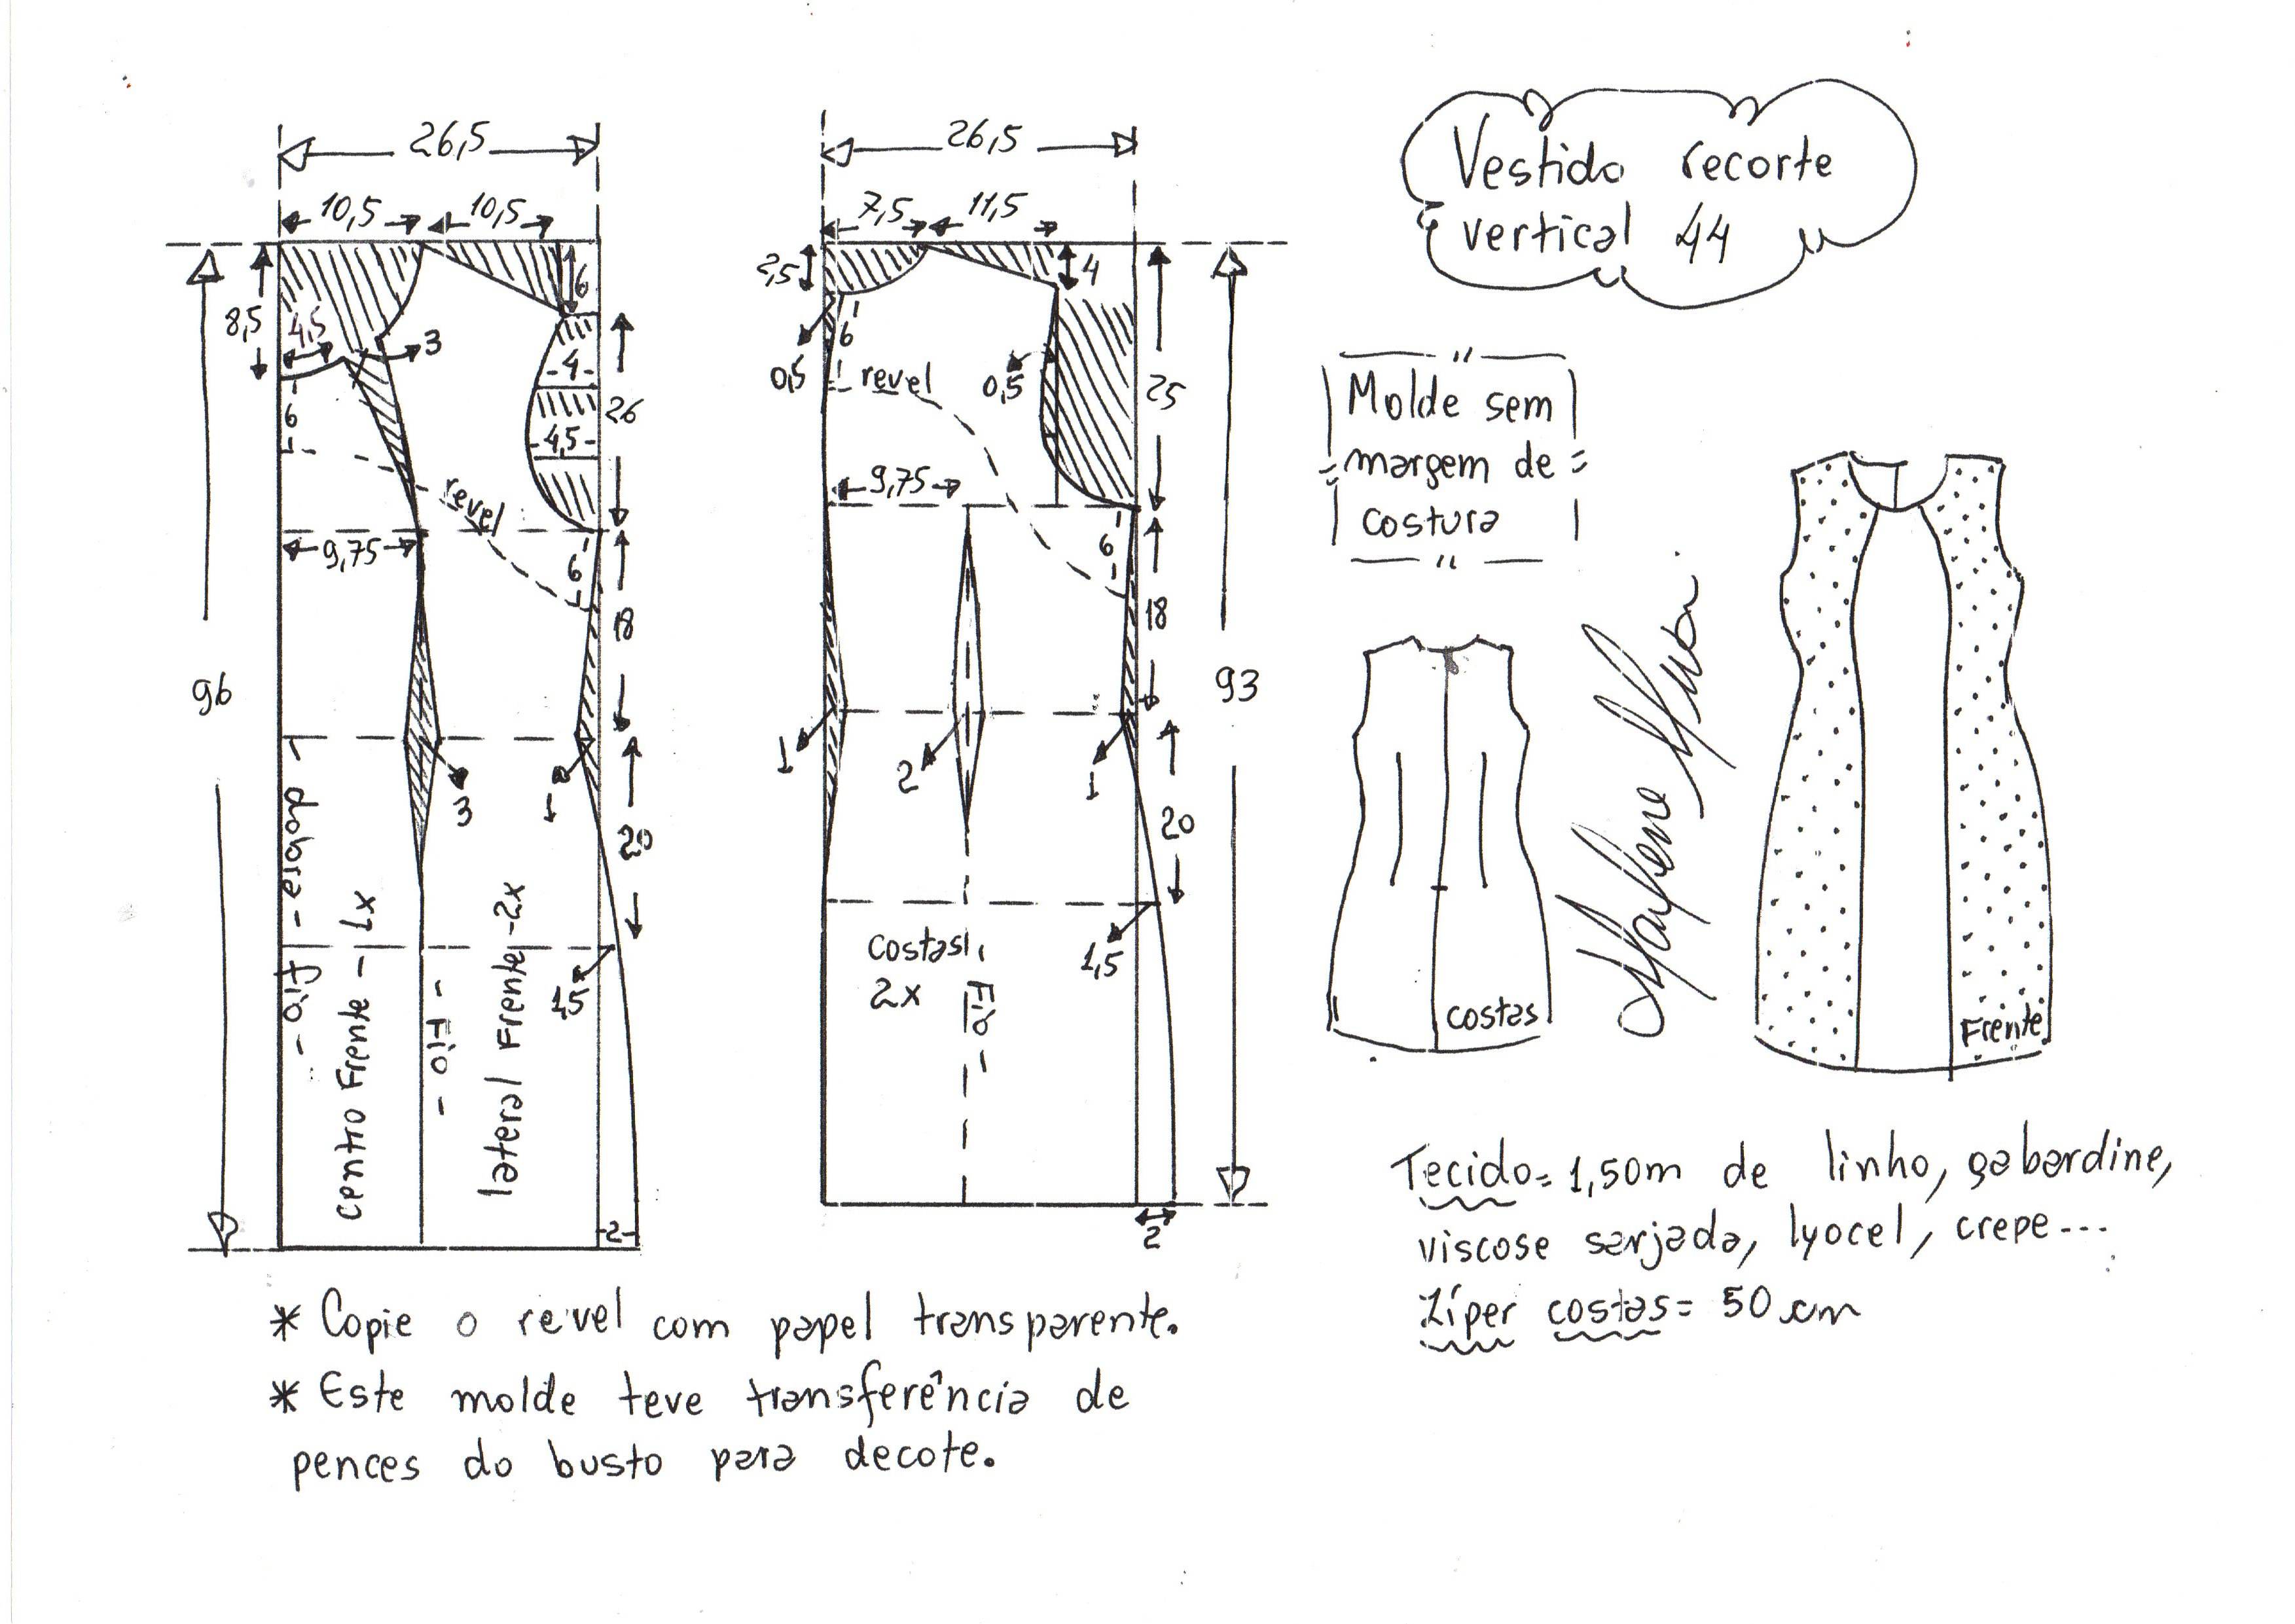 26,5
10,5
10,5
8,5
4,5
3
6
6
4
4,5
26
revel
9,75
6
18
96
3
1
20
1,5
dobra -
- Fio -
centro Frente - 1x
- Fio -
lateral Frente - 2x
2
26,5
7,5
11,5
2,5
4
6
0,5
0,5
revel
25
9,75
6
18
93
1
2
1
20
1,5
costas
2x
Fio -
2
Vestido recorte
vertical 44
Molde sem
margem de
costura
costas
Frente
Tecido= 1,50m de linho, gabardine,
viscose sarjada, lyocel, crepe...
Zíper costas= 50 cm
* Copie o revel com papel transparente.
* Este molde teve transferência de
pences do busto para decote.